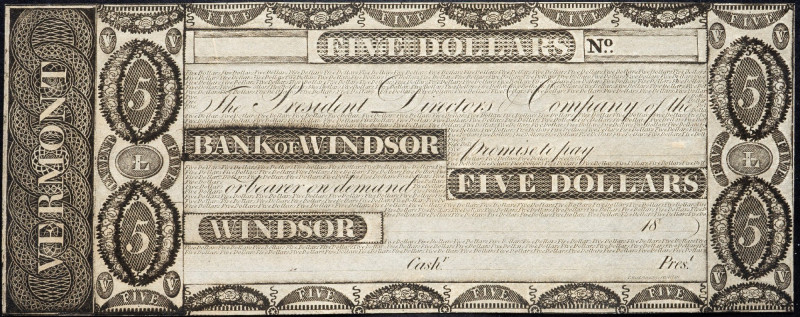 FIVE FIVE FIVE FIVE
FIVE DOLLARS No.
VERMONT
V V V V
5 5
The President Directors & Company of the
BANK OF WINDSOR promise to pay
Ł Ł
or bearer on demand FIVE DOLLARS
5 5
WINDSOR 18
Cashr. Prest.
V V V V
FIVE FIVE FIVE FIVE